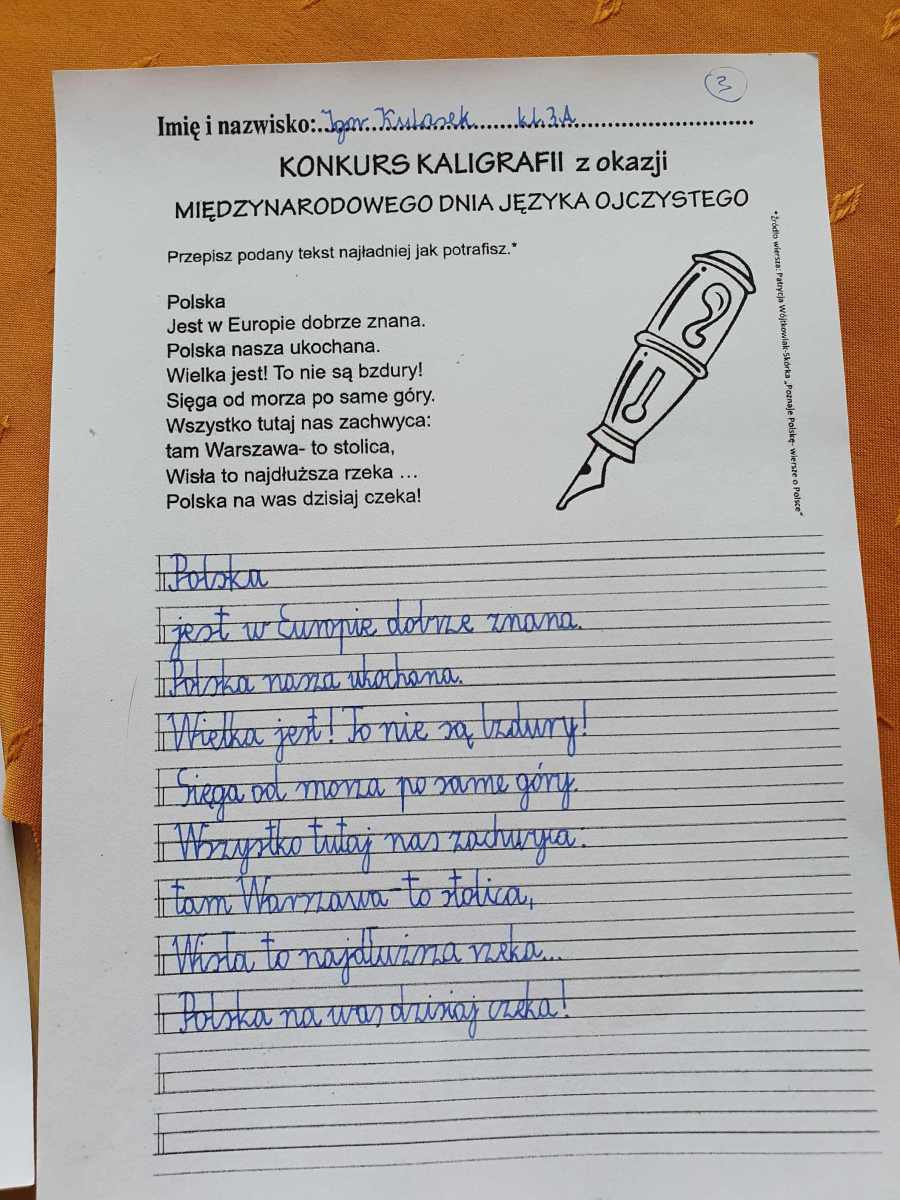 3
Imię i nazwisko: Igor Kulasek kl. 3A
KONKURS KALIGRAFII z okazji
MIĘDZYNARODOWEGO DNIA JĘZYKA OJCZYSTEGO
Przepisz podany tekst najładniej jak potrafisz.*
Polska
Jest w Europie dobrze znana.
Polska nasza ukochana.
Wielka jest! To nie są bzdury!
Sięga od morza po same góry.
Wszystko tutaj nas zachwyca:
tam Warszawa- to stolica,
Wisła to najdłuższa rzeka ...
Polska na was dzisiaj czeka!
*Źródło wiersza: Patrycja Wójtkowiak-Skórka „Poznaję Polskę- wiersze o Polsce"
Polska
jest w Europie dobrze znana.
Polska nasza ukochana.
Wielka jest! To nie są bzdury!
Sięga od morza po same góry.
Wszystko tutaj nas zachwyca:
tam Warszawa- to stolica,
Wisła to najdłuższa rzeka...
Polska na was dzisiaj czeka!